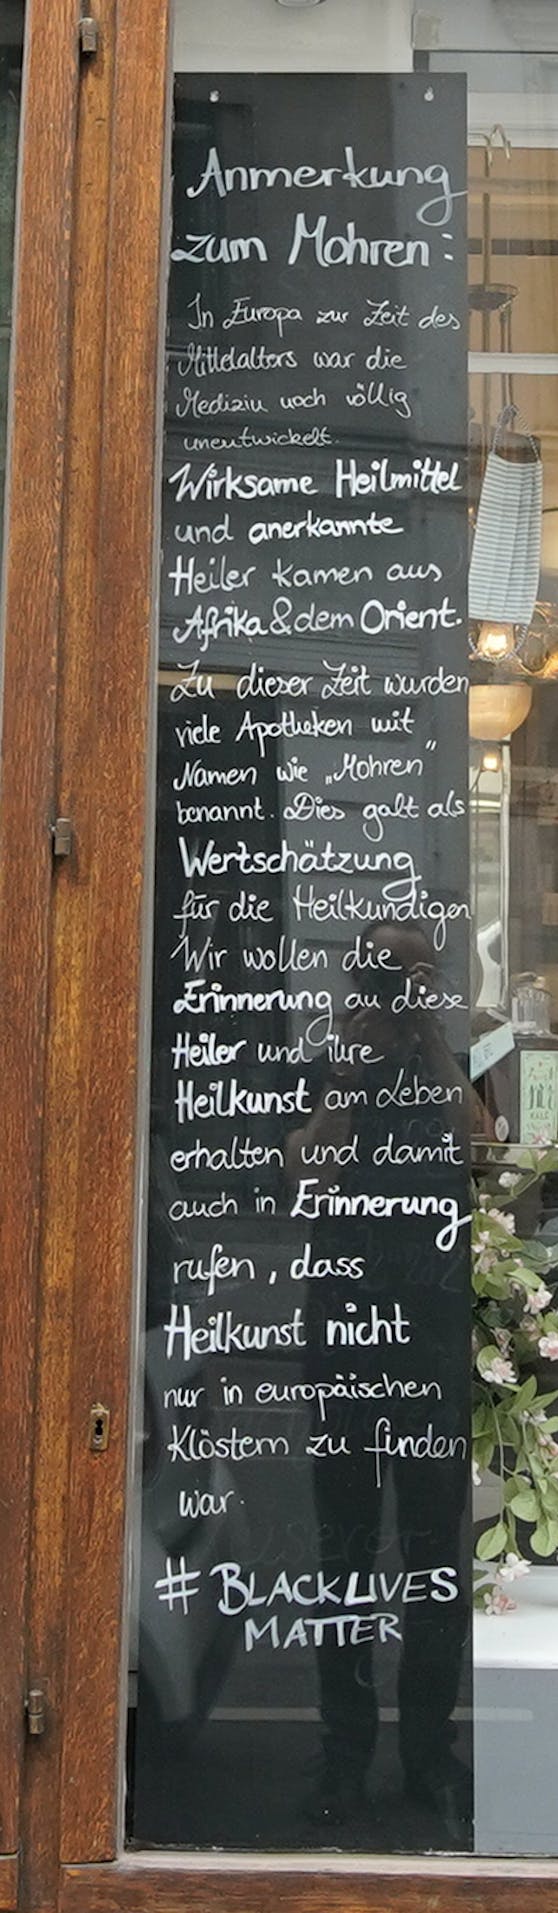 Anmerkung
zum Mohren:
In Europa zur Zeit des
Mittelalters war die
Medizin noch völlig
unentwickelt.
Wirksame Heilmittel
und anerkannte
Heiler kamen aus
Afrika & dem Orient.
Zu dieser Zeit wurden
viele Apotheken mit
Namen wie „Mohren"
benannt. Dies galt als
Wertschätzung
für die Heilkundigen
Wir wollen die
Erinnerung an diese
Heiler und ihre
Heilkunst am Leben
erhalten und damit
auch in Erinnerung
rufen, dass
Heilkunst nicht
nur in europäischen
Klöstern zu finden
war.
# BLACK LIVES
MATTER